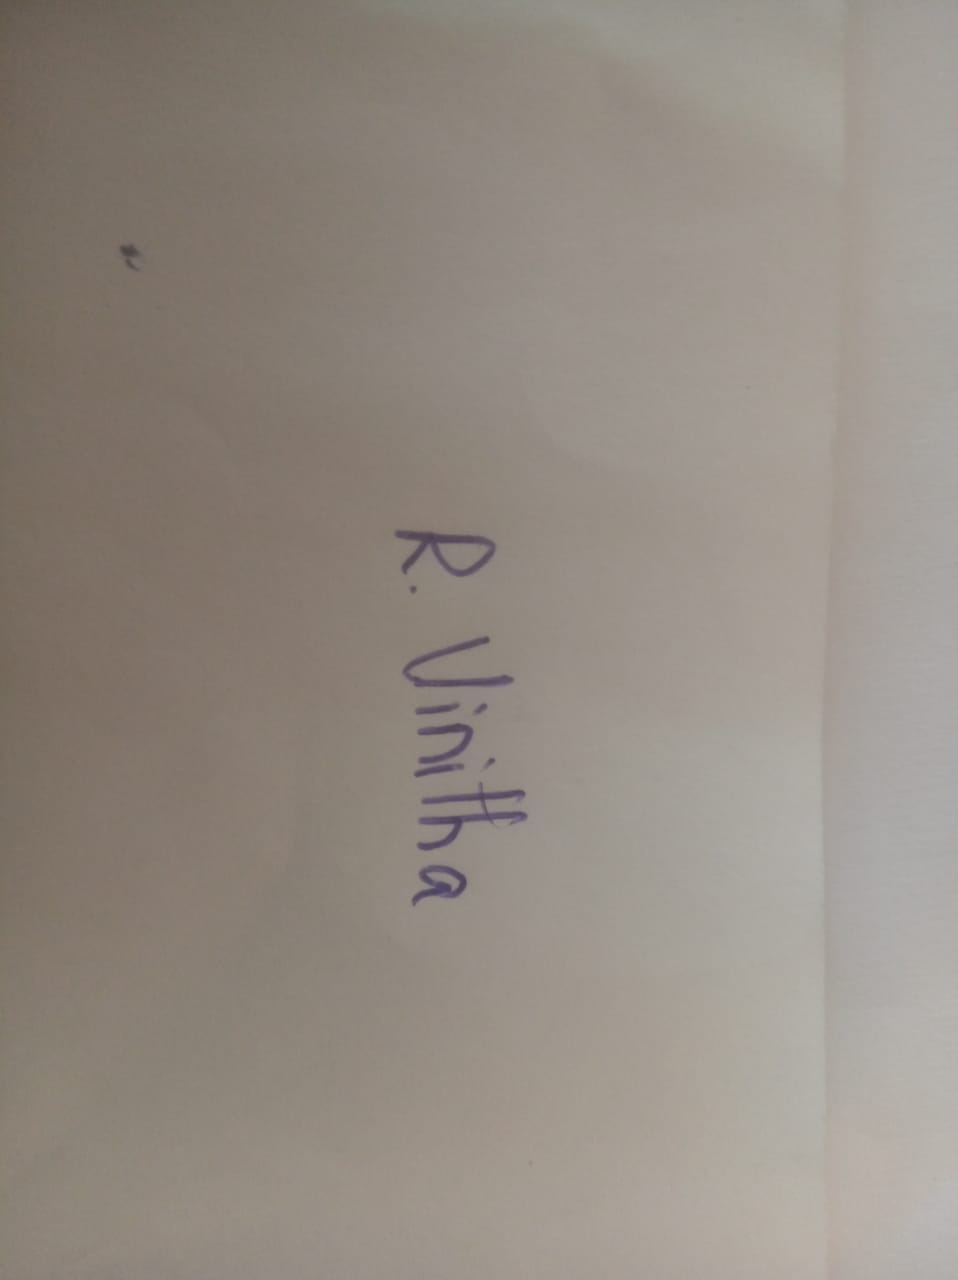 R. Vinitha